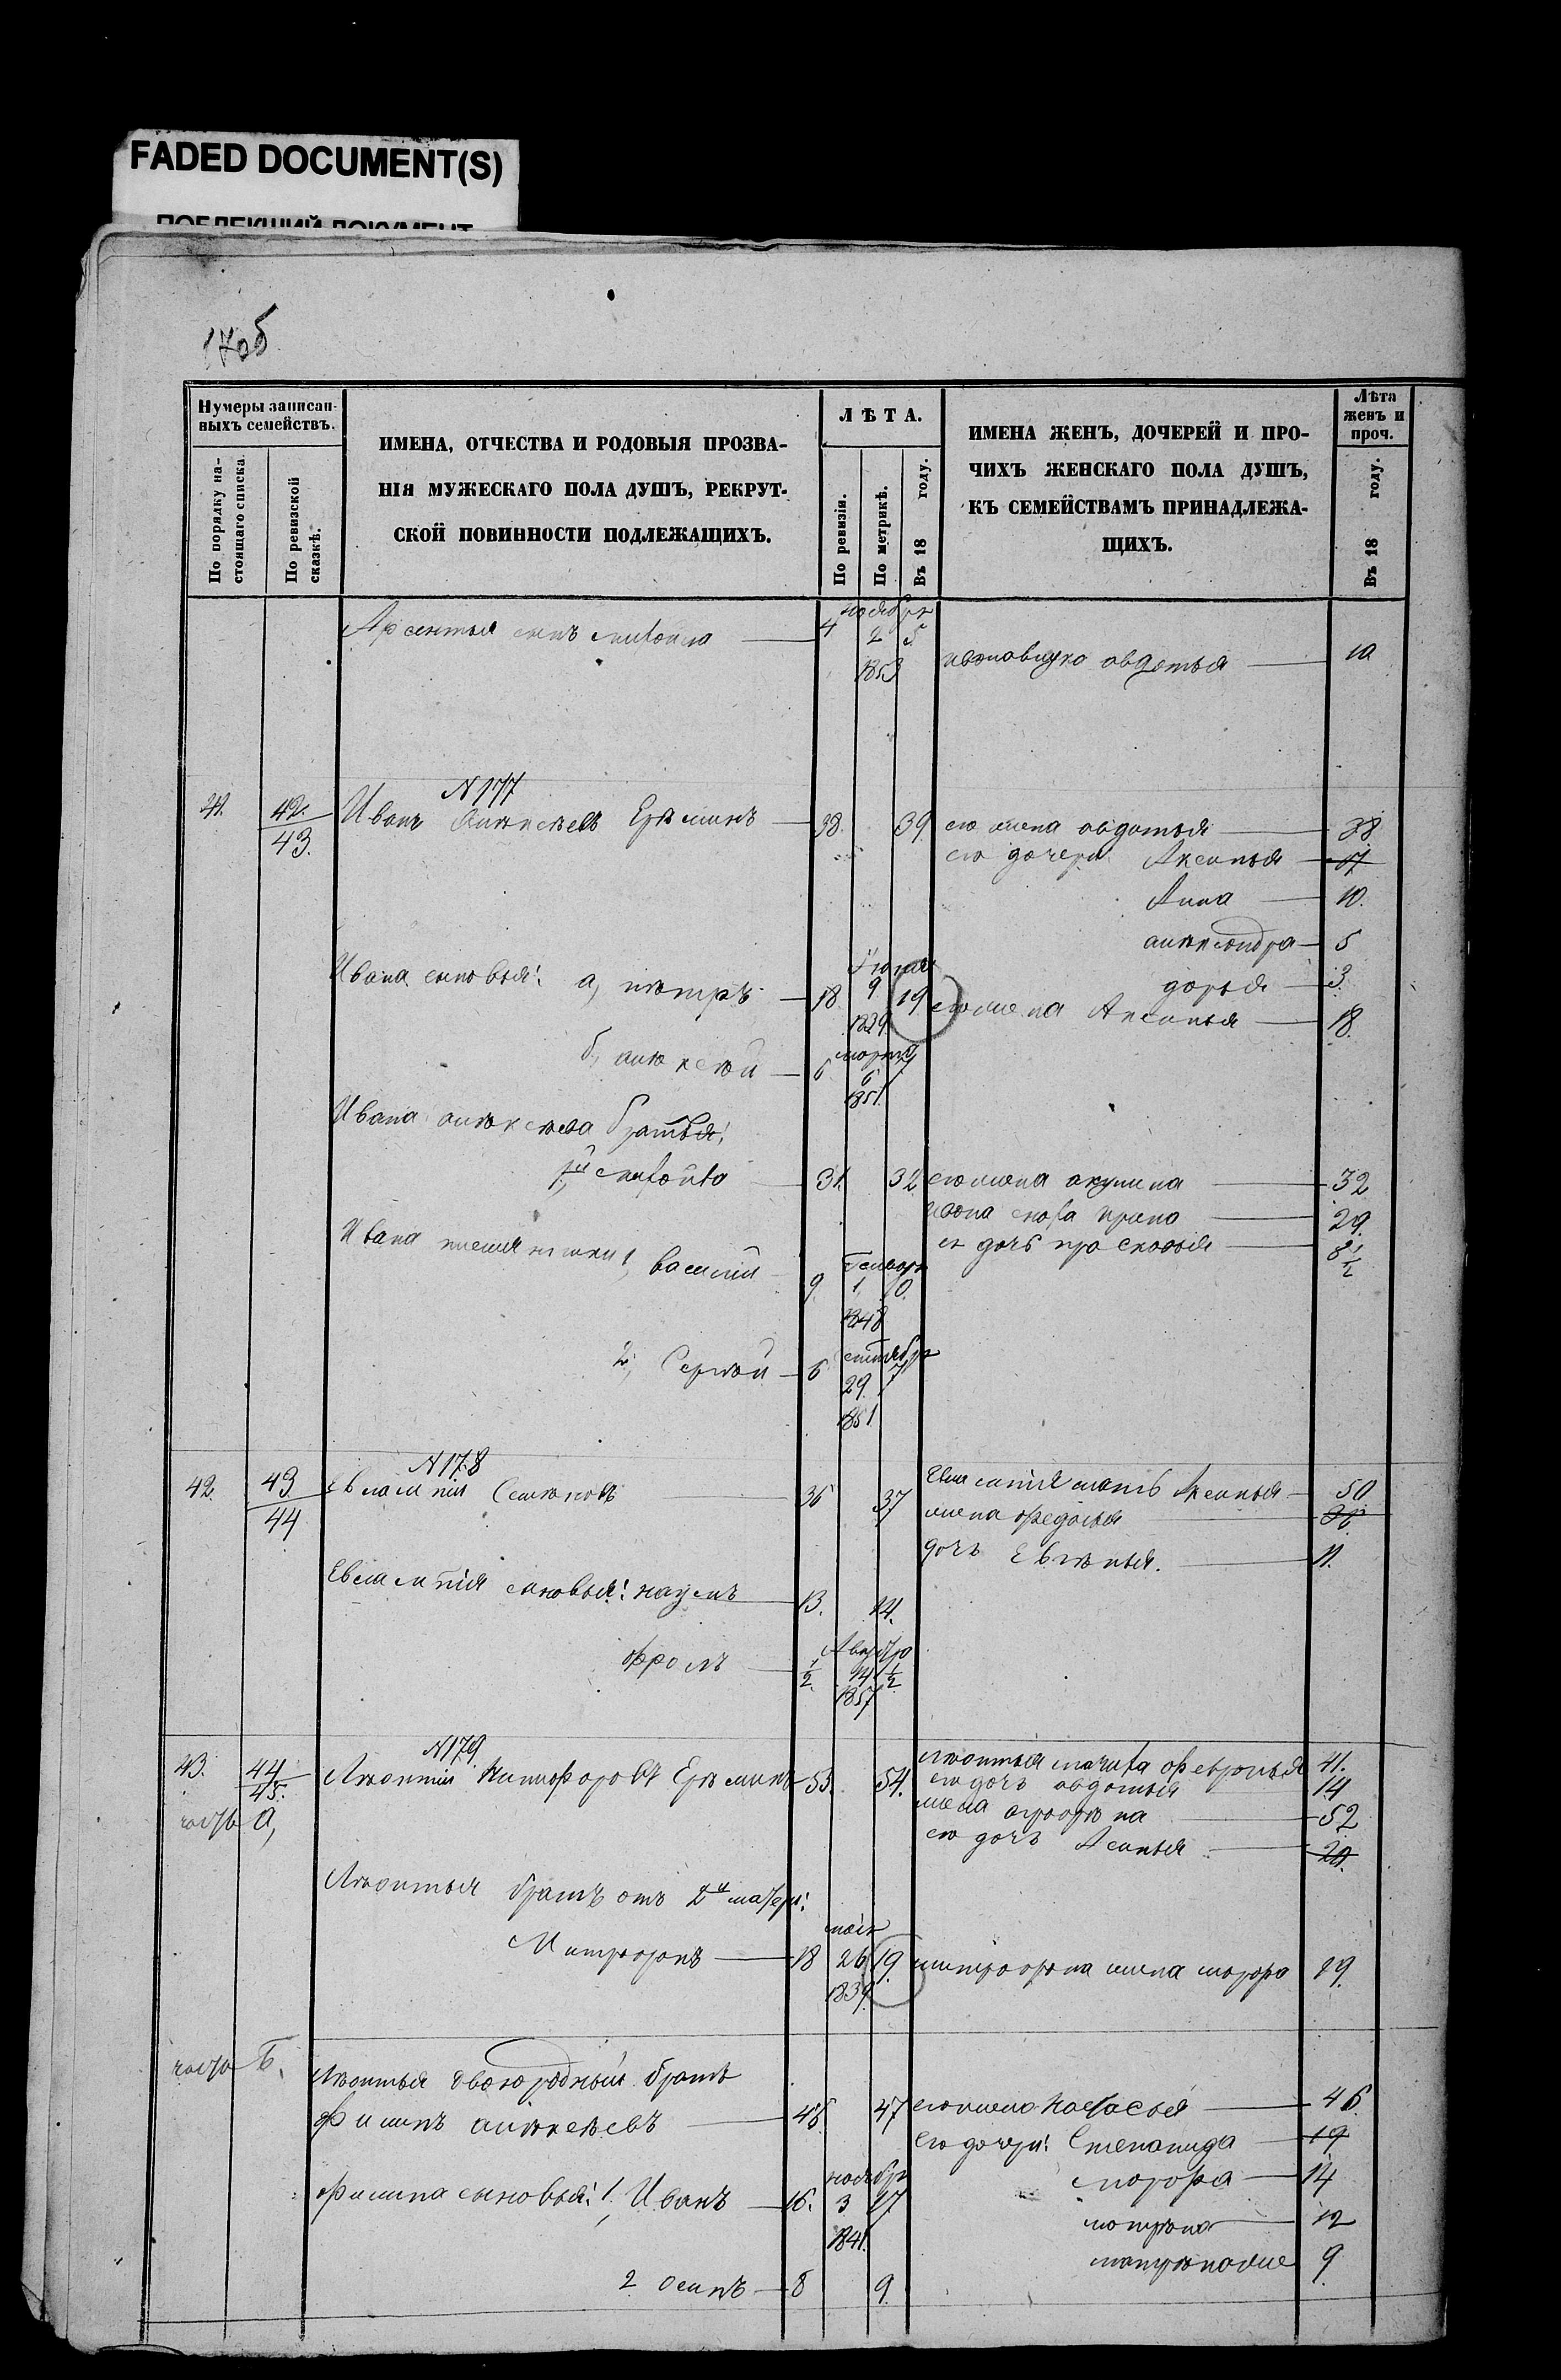 FADED DOCUMENT(S)
ПОБЛЕКШИЙ ДОКУМЕНТ
170б
Нумеры записан-
ныхъ семействъ.
По порядку на-
стоящаго списка
По ревизской
сказкѣ.
ИМЕНА, ОТЧЕСТВА И РОДОВЫЯ ПРОЗВА-
НІЯ МУЖЕСКАГО ПОЛА ДУШЪ, РЕКРУТ-
СКОЙ ПОВИННОСТИ ПОДЛЕЖАЩИХЪ.
ЛѢТА.
По ревизіи.
По метрикѣ.
Въ 18 году.
ИМЕНА ЖЕНЪ, ДОЧЕРЕЙ И ПРО-
ЧИХЪ ЖЕНСКАГО ПОЛА ДУШЪ,
КЪ СЕМЕЙСТВАМЪ ПРИНАДЛЕЖА-
ЩИХЪ.
Лѣта
женъ и
проч.
Въ 18 году.
Арсентья сынъ 4 ноября 2 1853 5
авдотья 10
N 177
41. 42./43. Иванъ алѣксѣевъ Ерѣминъ 38. 39. его жена авдотья 38
его дочери Аксинья 17
Анна 10.
алѣксандра 5
дарья 3
Ивана сыновья: а, пѣтръ 18 9 19 его жена Аксинья 18.
б, алѣксѣй 6 марта 6 1851. 7
Ивана алѣксѣева братья:
31. 32 его жена акулина 32
29.
ея дочь прасковья 8 1/2
Ивана племянники 1, василій 9. 1 1848 10.
2, Сергѣй 6 сентября 29. 1851 7
N 178
42. 43./44 Евлампій Семѣновъ 36 37 Евлампія мать Аксинья 50
жена федосья
дочь Евгѣнья. 11.
Евлампія сыновья: наумъ 13. 14.
фролъ 1/2 14 1857 1/2
N 179.
43. 44/45. Лѣонтій Никифоровъ Ерѣминъ 53. 54. лѣонтья мачиха февронья 41.
часть а, его дочь авдотья 14
жена агрофѣна 52
его дочь Асинья 20.
Лѣонтья братъ отъ 2й матери:
Митрофонъ 18 мая 26 1839. 19. митрофона жена марфа 19.
часть Б. Лѣонтья двоюродный братъ
филипъ алѣксѣевъ 46 47 его жена настасья 46
его дочери: Степанида 19
марфа 14
филипа сыновья: 1, Иванъ 16. ноября 3 1841. 17
матрѣна 12
матрѣна же 9.
2 осипъ 8 9.